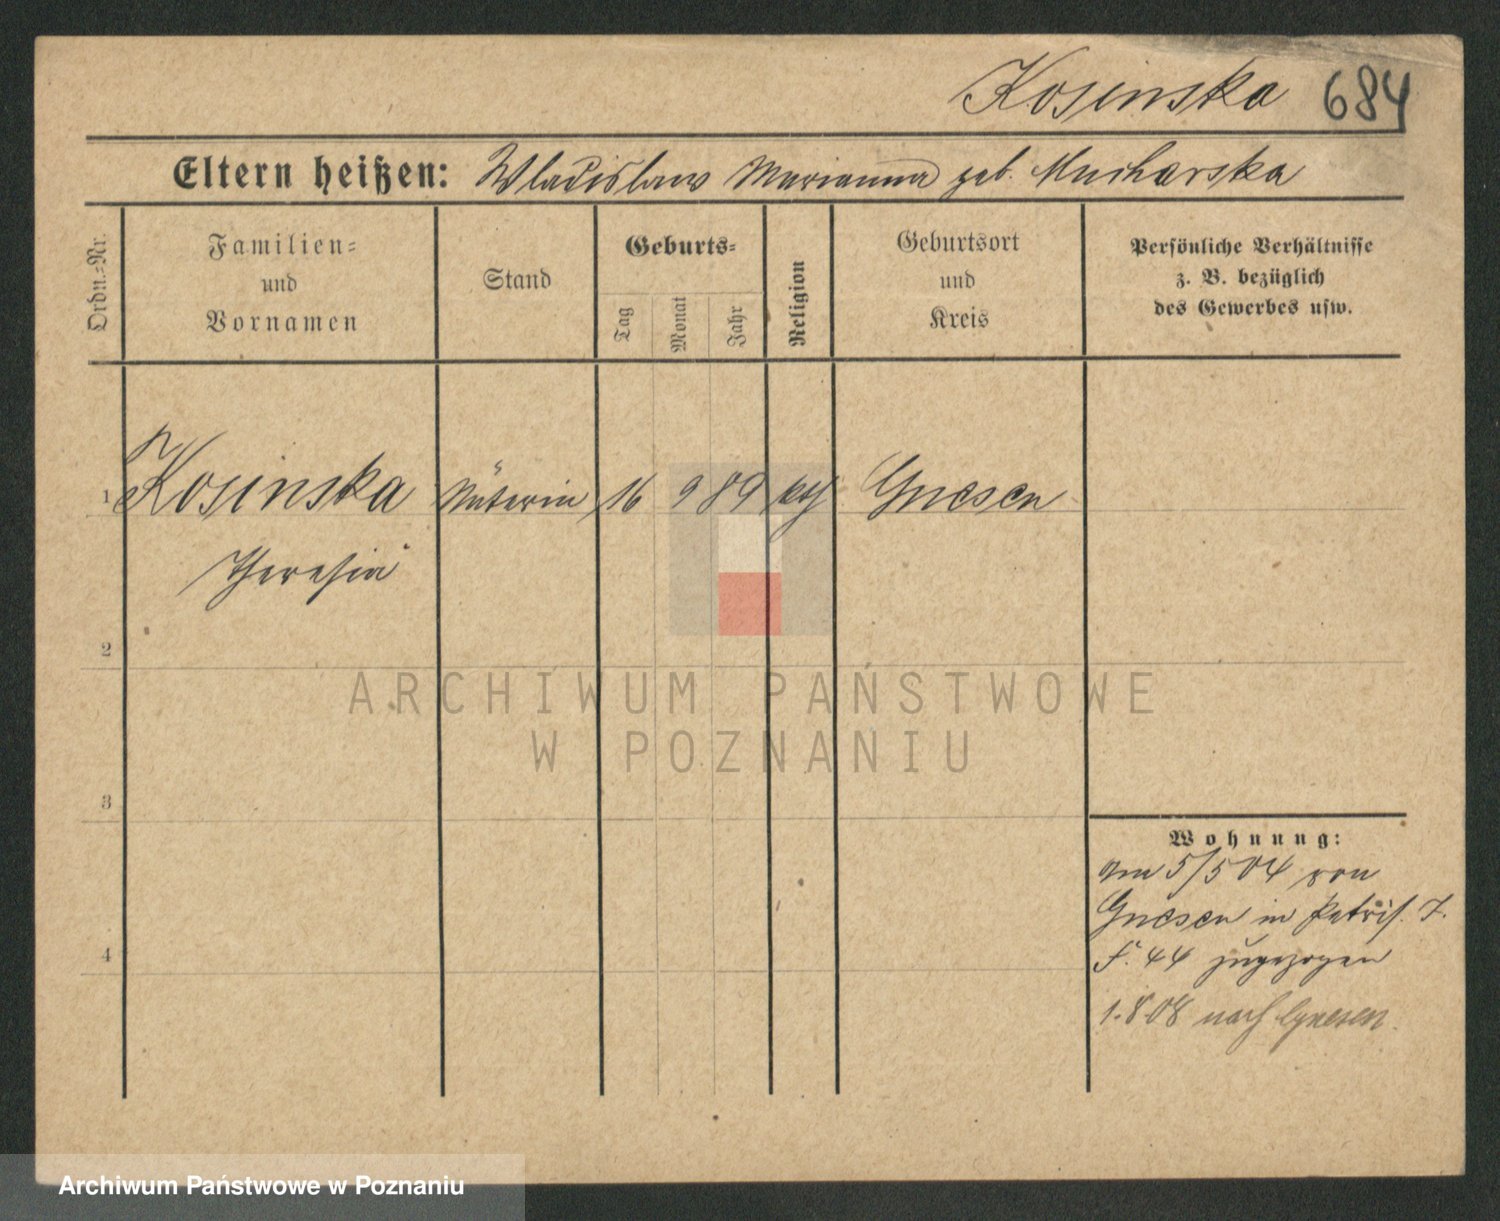 Kosinska 684
Eltern heißen: Wladislaw Marianna geb. Mucharska
Ordn.-Nr.
Familien-
und
Vornamen
Stand
Geburts-
Tag
Monat
Jahr
Religion
Geburtsort
und
Kreis
Persönliche Verhältnisse
z. B. bezüglich
des Gewerbes usw.
1 Kosinska Näterin 16 9 89 kth Gnesen
Theresia
2
3
4
Wohnung:
am 5/5 04 von
Gnesen in
44 zugezogen
1.8.08 nach Gnesen
ARCHIWUM PAŃSTWOWE
W POZNANIU
Archiwum Państwowe w Poznaniu